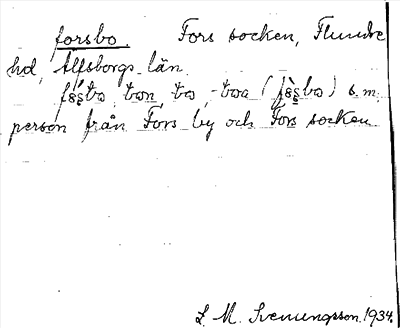 forsbo. Fors socken, Flundre
hd, Älfsborgs län.
-bon, -bo, -boa ( ) s. m.
person från Fors by och Fors socken
L. M. Svenungsson. 1934.